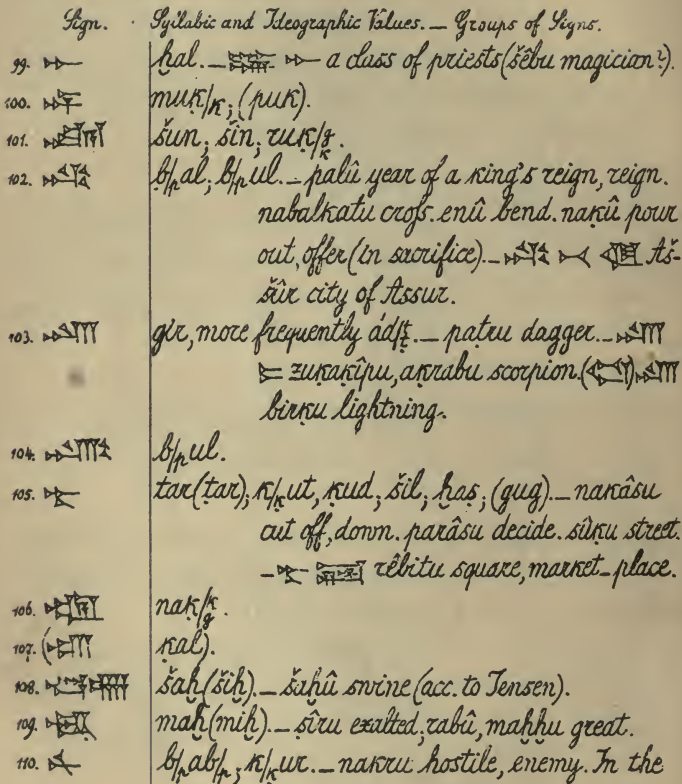 Sign. Syllabic and Ideographic Values. — Groups of Signs.
99. 𒄬 ḫal. — 𒄬 a class of priests (šêbu magician?).
100. muḳ/k; (puk).
101. šun; šin; ruḳ/g/k
102. 𒁄 b/pal; b/pul. — palû year of a king's reign, reign.
nabalkatu cross. enû bend. naḳû pour
out, offer (in sacrifice). — 𒁄 Aš-
šûr city of Assur.
103. 𒄈 gir, more frequently ád/ṭ. — paṭru dagger. — 𒄈
𒋰 zuḳaḳîpu, aḳrabu scorpion. 𒄈
birḳu lightning.
104. b/pul.
105. 𒋻 tar (ṭar); k/ḳut, ḳud; šil; ḫaṣ; (gug). — nakâsu
cut off, down. parâsu decide. sûḳu street.
— 𒋻 rêbitu square, market-place.
106. nak/ḳ/g.
107. (ḳal).
108. šaḫ (šiḫ). — šaḫû swine (acc. to Jensen).
109. 𒈤 maḫ (miḫ). — ṣîru exalted; rabû, maḫḫu great.
110. 𒉽 b/pab/p; k/ḳur. — nakru hostile, enemy. In the